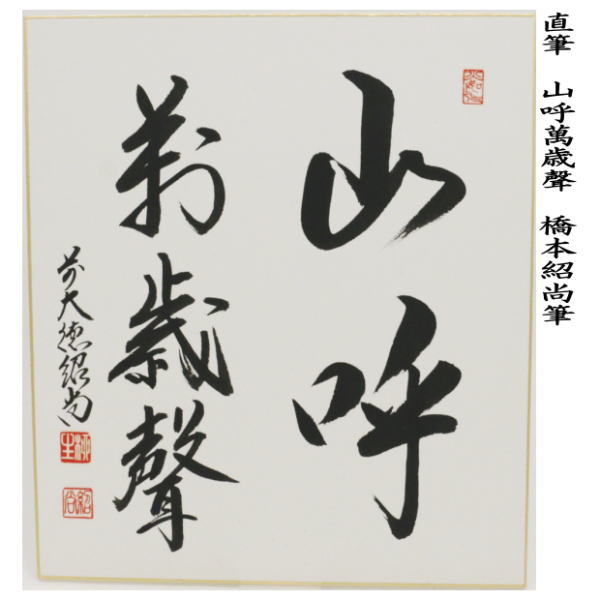 直筆　山呼萬歳聲　橋本紹尚筆
山呼
萬歳聲
前大徳紹尚
紹尚